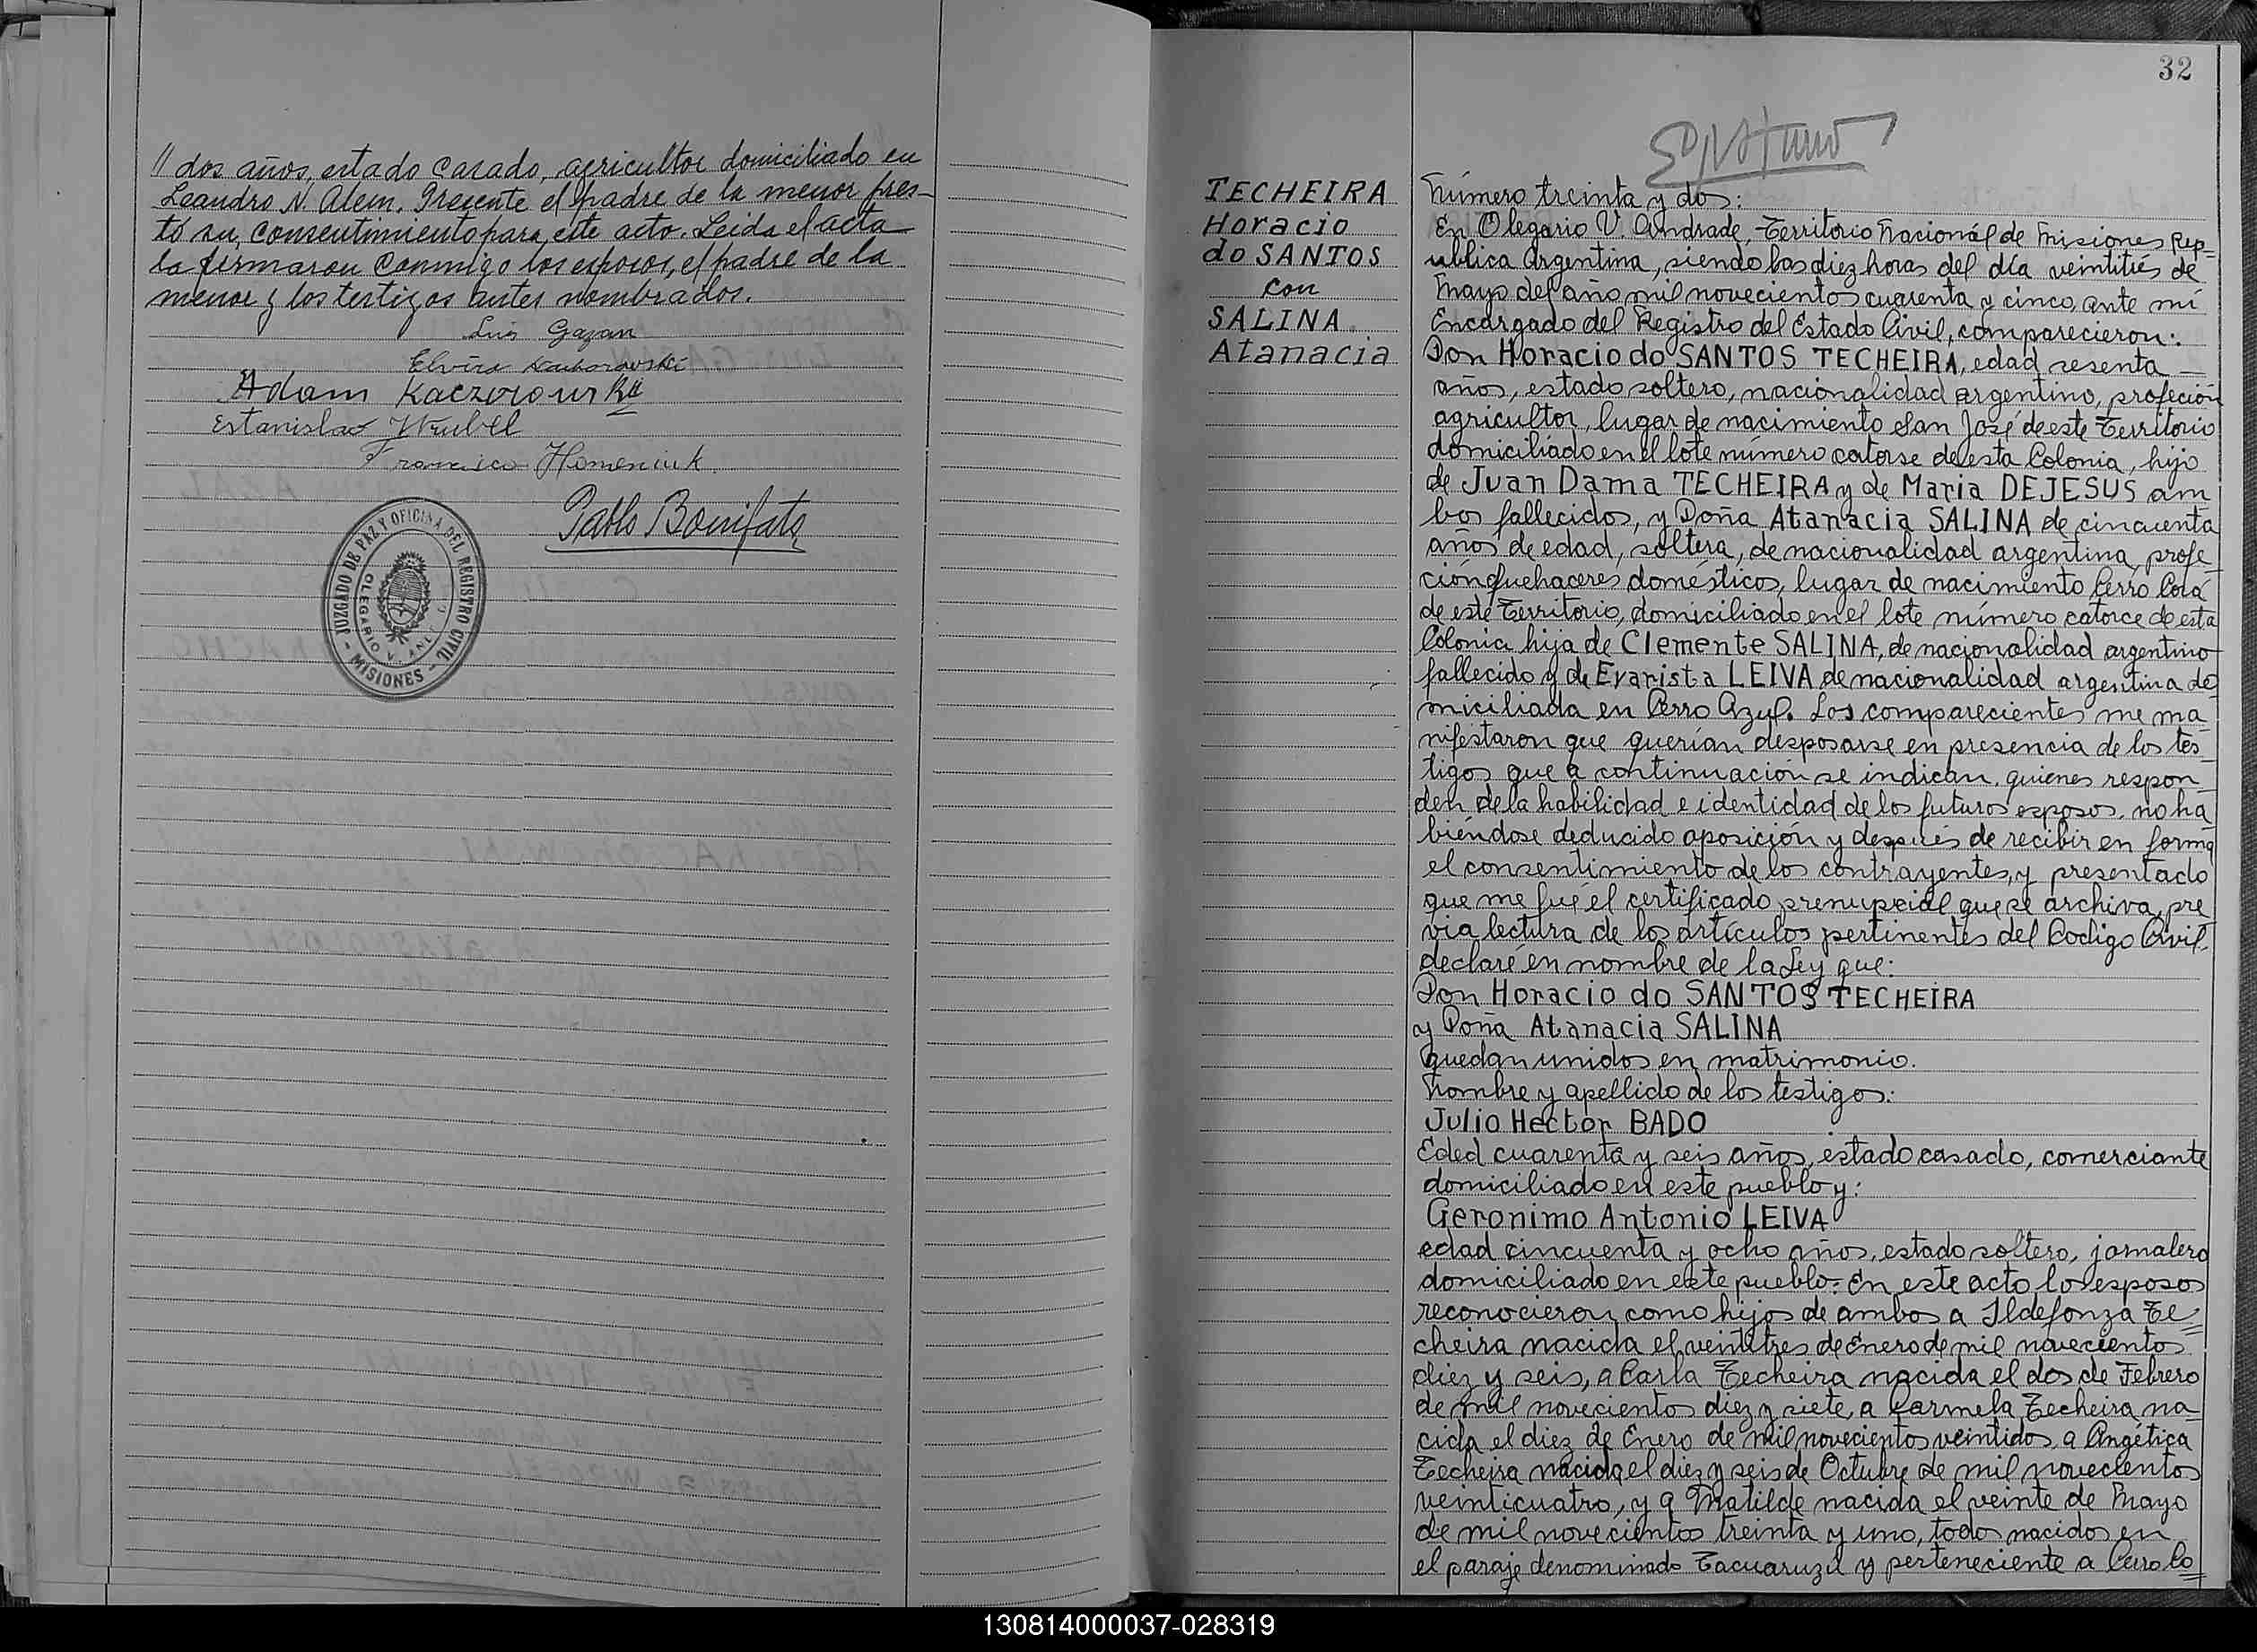 // dos años, estado casado, agricultor domiciliado en
Leandro N. Alem. Presente el padre de la menor pres-
tó su consentimiento para este acto. Leida el acta
la firmaron conmigo los esposos, el padre de la
menor y los testigos antes nombrados.
Luis Gazan
Elvira
Adam
Estanislao Wrubel
Francisco Homeniuk
Pablo Bonifato
JUZGADO DE PAZ Y OFICINA DEL REGISTRO CIVIL
OLEGARIO V. AND
- MISIONES -
32
TECHEIRA
Horacio
do SANTOS
con
SALINA
Atanacia
Número treinta y dos:
En Olegario V. Andrade, Territorio Nacional de Misiones Rep-
ública Argentina, siendo las diez horas del día veintitrés de
Mayo del año mil novecientos cuarenta y cinco, ante mí
Encargado del Registro del Estado Civil, comparecieron:
Don Horacio do SANTOS TECHEIRA, edad sesenta
años, estado soltero, nacionalidad argentino, profeción
agricultor, lugar de nacimiento San José de este Territorio
domiciliado en el lote número catorse de esta Colonia, hijo
de Juan Dama TECHEIRA y de Maria DEJESUS am
bos fallecidos, y Doña Atanacia SALINA de cincuenta
años de edad, soltera, de nacionalidad argentina, profe
ción quehaceres domésticos, lugar de nacimiento Cerro Corá
de este Territorio, domiciliado en el lote número catorce de esta
Colonia hija de Clemente SALINA, de nacionalidad argentino
fallecido y de Evarista LEIVA de nacionalidad argentina do
miciliada en Cerro Azul. Los comparecientes me ma
nifestaron que querían desposarse en presencia de los tes
tigos que a continuación se indican, quienes respon
den de la habilidad e identidad de los futuros esposos, no ha
biéndose deducido oposición y después de recibir en forma
el consentimiento de los contrayentes, y presentado
que me fué el certificado prenupcial que se archiva, pre
via lectura de los artículos pertinentes del Codigo Civil,
declaré en nombre de la Ley que:
Don Horacio do SANTOS TECHEIRA
y Doña Atanacia SALINA
quedan unidos en matrimonio.
Nombre y apellido de los testigos:
Julio Hector BADO
Edad cuarenta y seis años, estado casado, comerciante
domiciliado en este pueblo y:
Geronimo Antonio LEIVA
edad cincuenta y ocho años, estado soltero, jornalero
domiciliado en este pueblo. En este acto los esposos
reconocieron como hijos de ambos a Ildefonza Te=
cheira nacida el veintitres de Enero de mil novecientos
diez y seis, a Carla Techeira nacida el dos de Febrero
de mil novecientos diez y siete, a Carmela Techeira na
cida el diez de Enero de mil novecientos veintidos, a Angélica
Techeira nacida el diez y seis de Octubre de mil novecientos
veinticuatro, y a Matilde nacida el veinte de Mayo
de mil novecientos treinta y uno, todos nacidos en
el paraje denominado Tacuaruzú y perteneciente a Cerro Co=
130814000037-028319